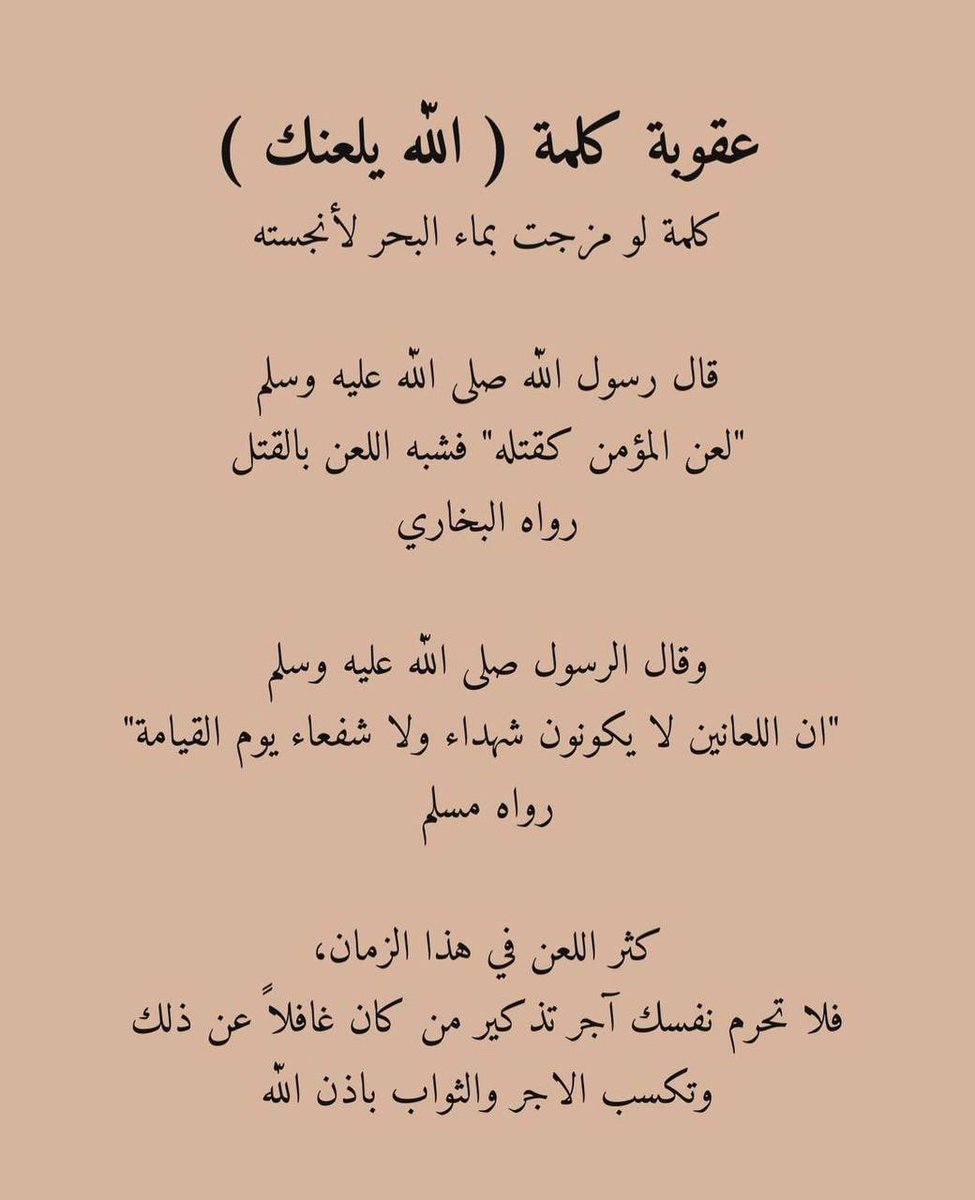 عقوبة كلمة ( الله يلعنك )
كلمة لو مزجت بماء البحر لأنجسته
قال رسول الله صلى الله عليه وسلم
"لعن المؤمن كقتله" فشبه اللعن بالقتل
رواه البخاري
وقال الرسول صلى الله عليه وسلم
"ان اللعانين لا يكونون شهداء ولا شفعاء يوم القيامة"
رواه مسلم
كثر اللعن في هذا الزمان،
فلا تحرم نفسك آجر تذكير من كان غافلاً عن ذلك
وتكسب الاجر والثواب باذن الله